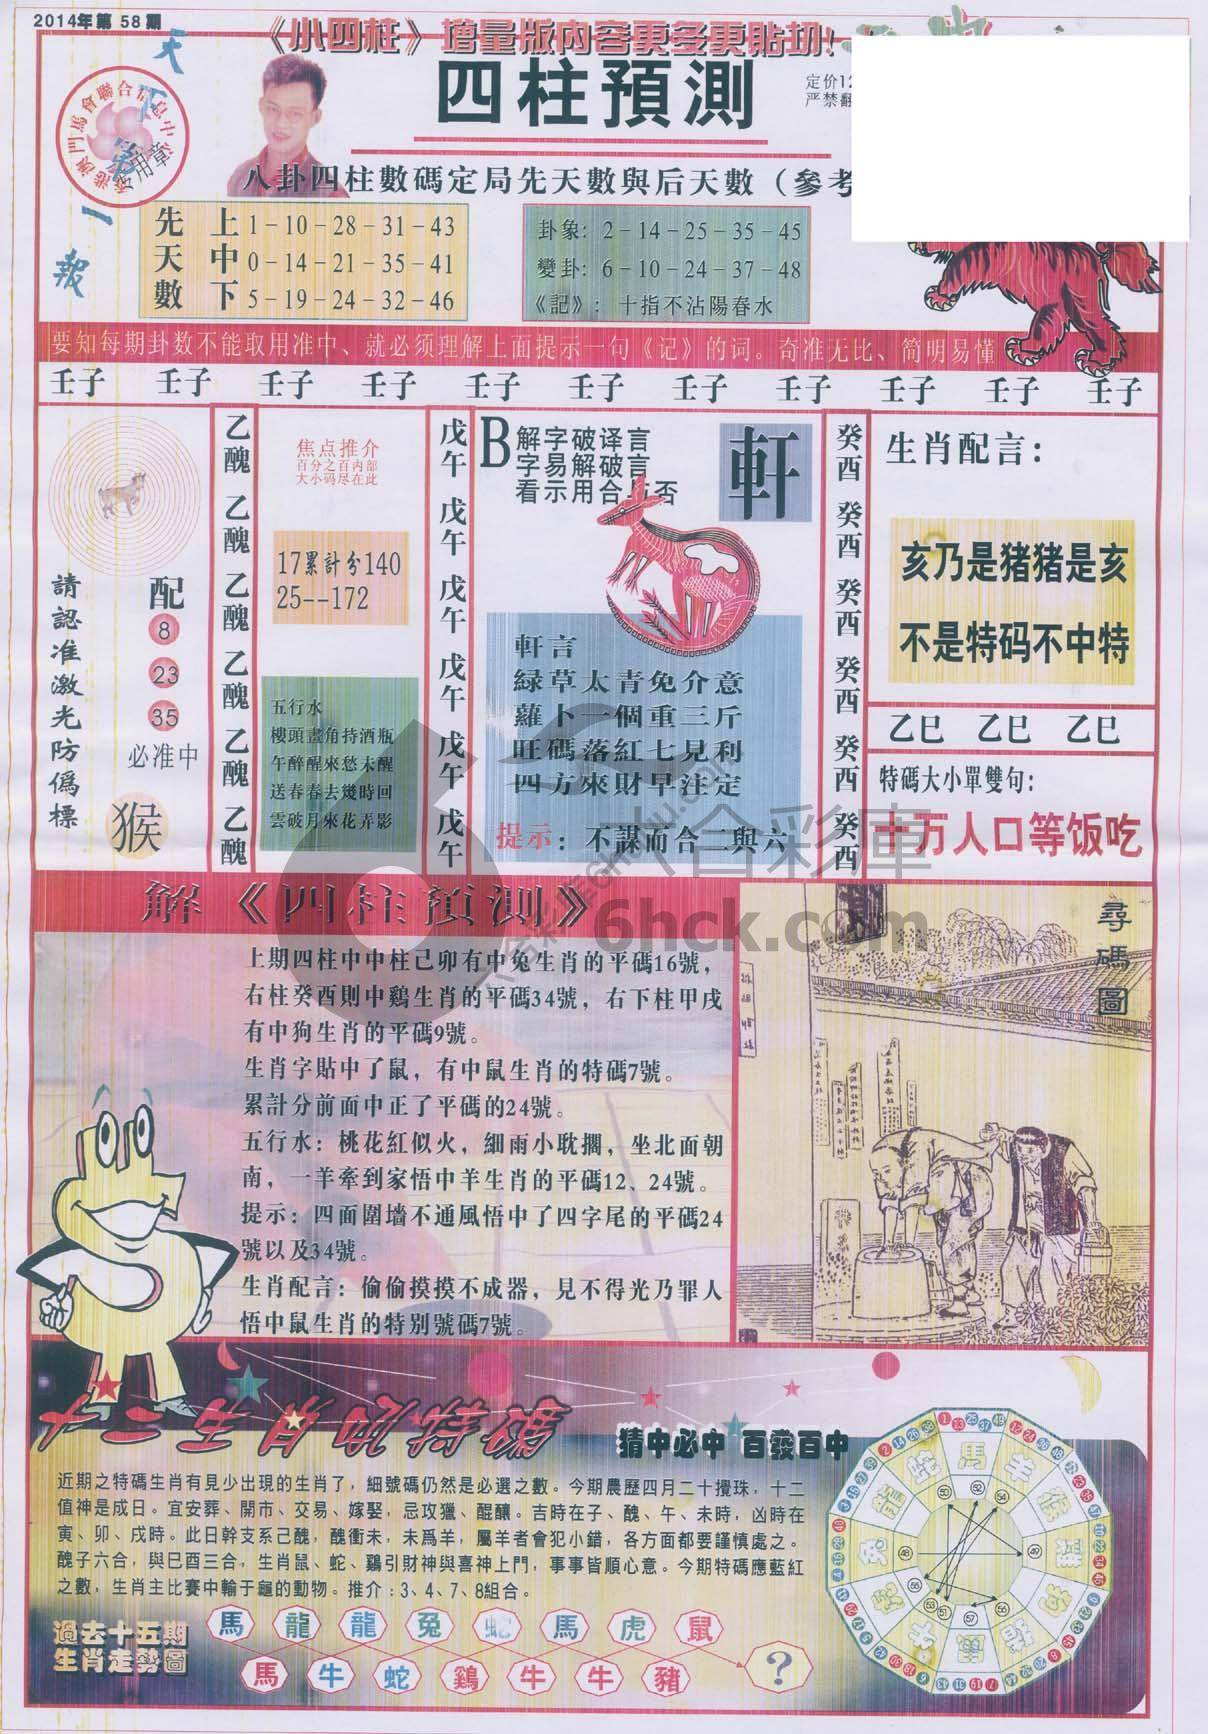 2014年第58期
《小四柱》增量版内容更多更贴切!
四柱預測
定价
严禁翻
八卦四柱數碼定局先天數與后天數（參考
天下第一報
先天數
上 1－10－28－31－43
中 0－14－21－35－41
下 5－19－24－32－46
卦象: 2－14－25－35－45
變卦: 6－10－24－37－48
《記》: 十指不沾陽春水
要知每期卦数不能取用准中、就必须理解上面提示一句《记》的词。奇准无比、简明易懂
壬子 壬子 壬子 壬子 壬子 壬子 壬子 壬子 壬子 壬子 壬子
請認准激光防僞標
配
8
23
35
必准中
猴
乙醜 乙醜 乙醜 乙醜 乙醜 乙醜
焦点推介
百分之百内部
大小码尽在此
17累計分140
25--172
五行水
樓頭畫角持酒瓶
午醉醒來愁未醒
送春春去幾時回
雲破月來花弄影
戊午 戊午 戊午 戊午 戊午 戊午
B 解字破译言
字易解破言
看示用合与否
軒
軒言
緑草太青免介意
蘿卜一個重三斤
旺碼落紅七見利
四方來財早注定
提示：不謀而合二與六
癸酉 癸酉 癸酉 癸酉 癸酉 癸酉
生肖配言：
亥乃是猪猪是亥
不是特码不中特
乙巳 乙巳 乙巳
特碼大小單雙句:
十万人口等饭吃
六合彩庫
6hck.com
解《四柱預測》
上期四柱中中柱己卯有中兔生肖的平碼16號，
右柱癸酉則中鷄生肖的平碼34號，右下柱甲戌
有中狗生肖的平碼9號。
生肖字貼中了鼠，有中鼠生肖的特碼7號。
累計分前面中正了平碼的24號。
五行水：桃花紅似火，細雨小耽擱，坐北面朝
南，一羊牽到家悟中羊生肖的平碼12、24號。
提示：四面圍墙不通風悟中了四字尾的平碼24
號以及34號。
生肖配言：偷偷摸摸不成器，見不得光乃罪人
悟中鼠生肖的特别號碼7號。
尋碼圖
猜中必中 百發百中
近期之特碼生肖有見少出現的生肖了，細號碼仍然是必選之數。今期農歷四月二十攪珠，十二
值神是成日。宜安葬、開市、交易、嫁娶，忌攻獵、醞釀。吉時在子、醜、午、未時，凶時在
寅、卯、戌時。此日幹支系己醜，醜衝未，未爲羊，屬羊者會犯小錯，各方面都要謹慎處之。
醜子六合，與巳酉三合，生肖鼠、蛇、鷄引財神與喜神上門，事事皆順心意。今期特碼應藍紅
之數，生肖主比賽中輸于龜的動物。推介：3、4、7、8組合。
過去十五期
生肖走勢圖
馬 龍 龍 兔 蛇 馬 虎 鼠
馬 牛 蛇 鷄 牛 牛 豬 ?